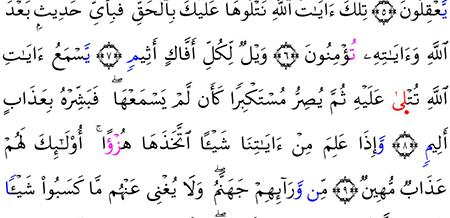 يَّعْقِلُونَ ﴿٥﴾ تِلْكَ ءَايَٰتُ ٱللَّهِ نَتْلُوهَا عَلَيْكَ بِٱلْحَقِّ فَبِأَيِّ حَدِيثٍۭ بَعْدَ
ٱللَّهِ وَءَايَٰتِهِۦ تُؤْمِنُونَ ﴿٦﴾ وَيْلٌ لِّكُلِّ أَفَّاكٍ أَثِيمٍ ﴿٧﴾ يَّسْمَعُ ءَايَٰتِ
ٱللَّهِ تُتْلَىٰ عَلَيْهِ ثُمَّ يُصِرُّ مُسْتَكْبِرًا كَأَن لَّمْ يَسْمَعْهَا ۖ فَبَشِّرْهُ بِعَذَابٍ
أَلِيمٍ ﴿٨﴾ وَّإِذَا عَلِمَ مِنْ ءَايَٰتِنَا شَيْـًٔا ٱتَّخَذَهَا هُزْؤًا ۚ أُو۟لَٰٓئِكَ لَهُمْ
عَذَابٌ مُّهِينٌ ﴿٩﴾ مِّن وَرَآئِهِمْ جَهَنَّمُ ۖ وَلَا يُغْنِي عَنْهُم مَّا كَسَبُوا۟ شَيْـًٔا